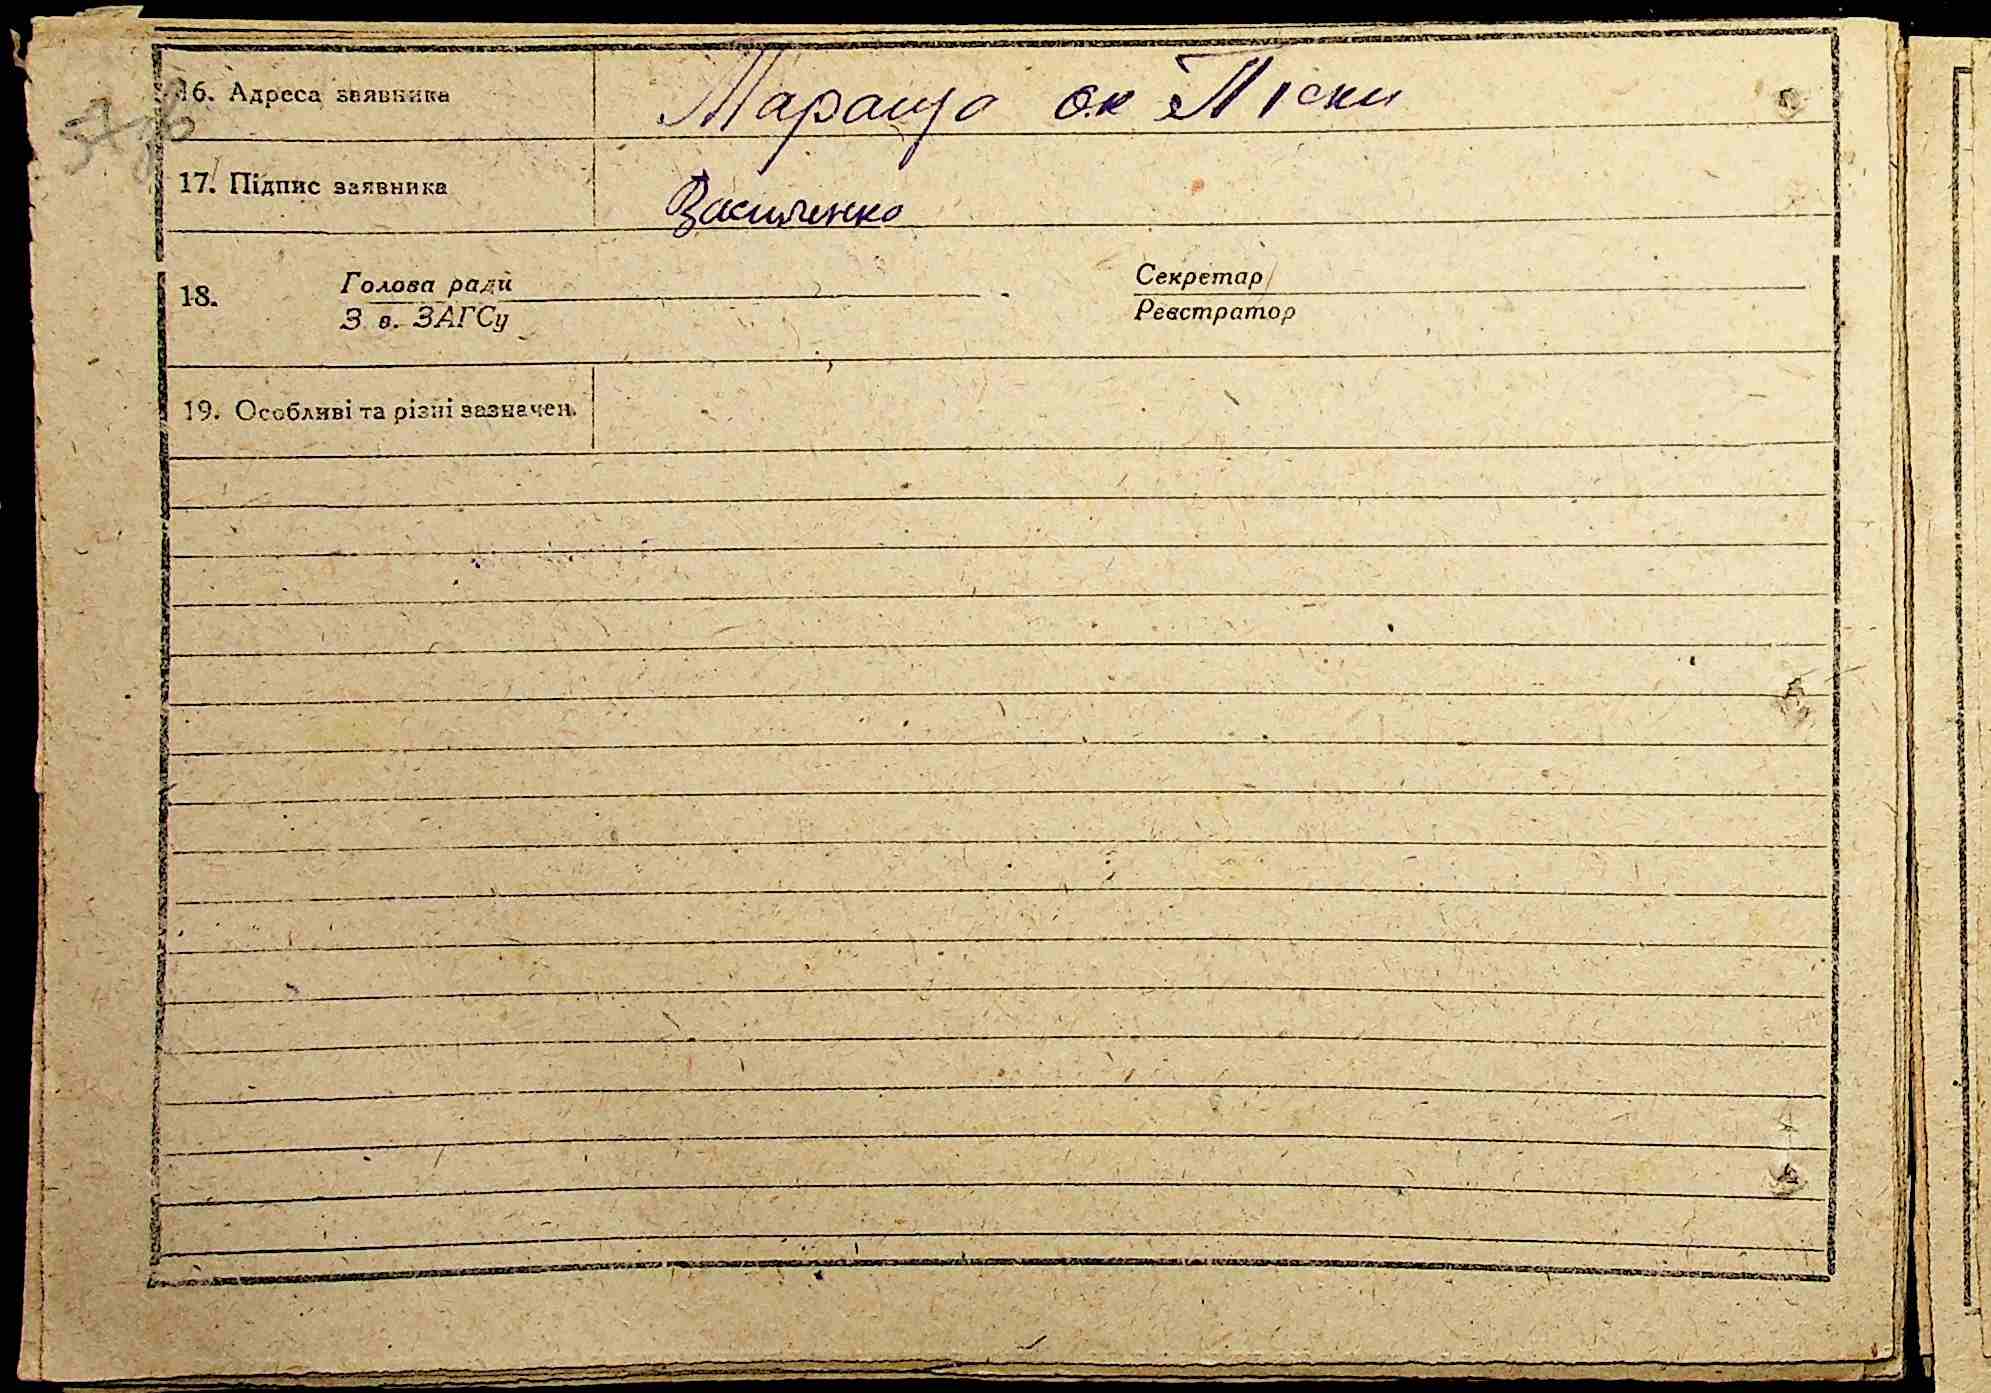 16. Адреса заявника Тараща ок Піски
17. Підпис заявника Василенко
18. Голова ради Секретар
З в. ЗАГСу Реєстратор
19. Особливі та різні зазначен.